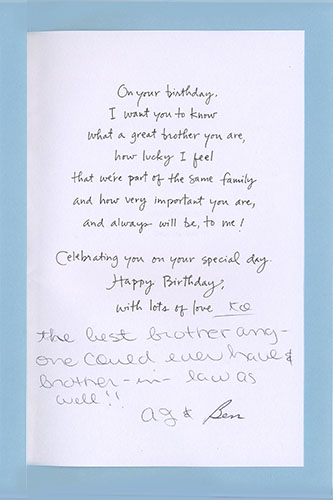 On your birthday,
I want you to know
what a great brother you are,
how lucky I feel
that we're part of the same family
and how very important you are,
and always will be, to me!
Celebrating you on your special day.
Happy Birthday,
with lots of love to
the best brother any-
one could ever have &
brother-in-law as
well!!
AJ & Ben